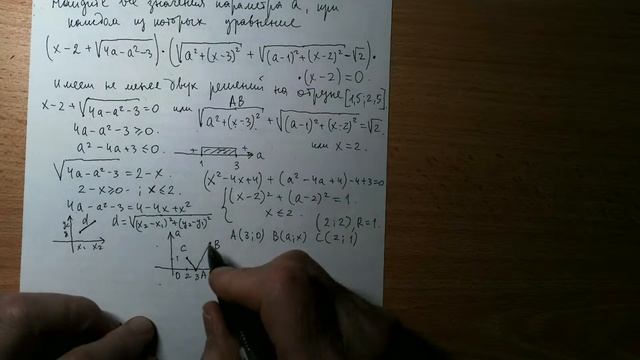 Найдите все значения параметра a, при
каждом из которых уравнение
(x-2+√(4a-a²-3))·(√(a²+(x-3)²)+√((a-1)²+(x-2)²)-√2)·
·(x-2)=0.
имеет не менее двух решений на отрезке [1,5;2,5].
x-2+√(4a-a²-3)=0 или √(a²+(x-3)²)+√((a-1)²+(x-2)²)=√2
AB
4a-a²-3≥0.
или x=2.
a²-4a+3≤0.
+ + 1 3 a
√(4a-a²-3)=2-x.
(x²-4x+4)+(a²-4a+4)-4+3=0
2-x≥0; x≤2.
{(x-2)²+(a-2)²=1.
x≤2.
4a-a²-3=4-4x+x²
(2;2), R=1.
d
x₁ x₂
d=√((x₂-x₁)²+(y₂-y₁)²)
A(3;0) B(a;x) C(2;1)
a
C
B
1
0 2 3 A